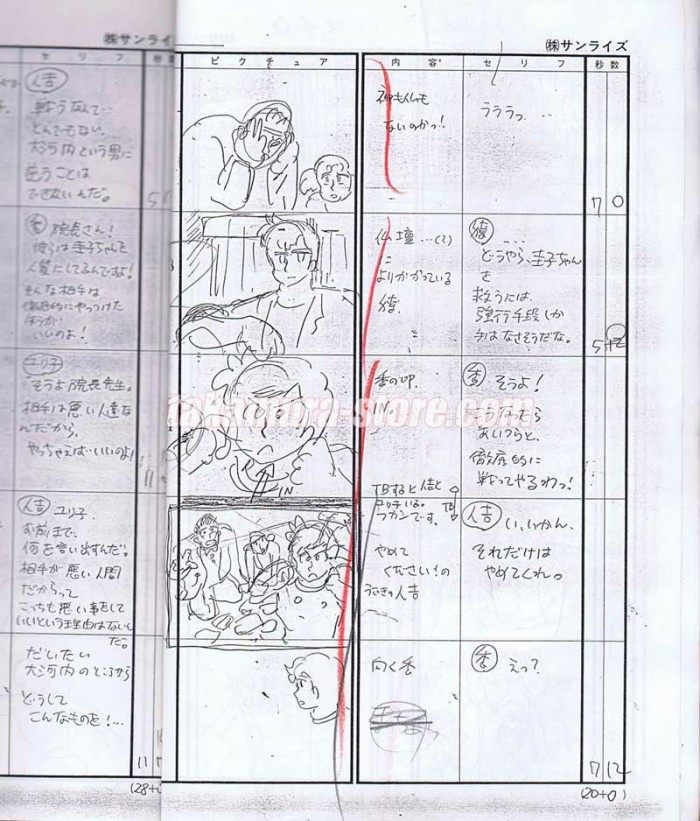 (株)サンライ
セリフ
秒
人吉
戦うなんて…
とんでもない。
大河内という男に
逆うことは
できないんだ。
香 院長さん!
彼らは圭子ちゃんを
人質にしてるんですよ!
そんな相手は
徹底的にやっつけた
ほうが
いいのよ!
ユリ子
そうよ院長先生。
相手は悪い人達な
んだから、
やっちゃえばいいのよ!
11
人吉 ユリ子
お前まで、
何を言い出すんだ。
相手が悪い人間
だからって
こっちも悪い事をして
いいという理由はない
だ。
だいたい
大河内のところから
どうして
こんなものを!…
(28+0
(株)サンライズ
ピクチュア
内容
セリフ
秒数
ないのかっ!
うううっ…
7 0
仏壇…(?)
に
よりかかっている
どうやら、圭子ちゃん
を
救うには
強行手段しか
手はなさそうだな。
5 12
香の叩
IN
香 そうよ!
こうなったら
あいつらと、
徹底的に
戦ってやるわっ!
IN
TBすると人吉と
ユリ子いる。
フカンです。
TB
やめて
ください!の
人吉
人吉 い、いかん、
それだけは
やめてくれ。
向く香
香 えっ?
7 12
(20+0)
takamura-store.com